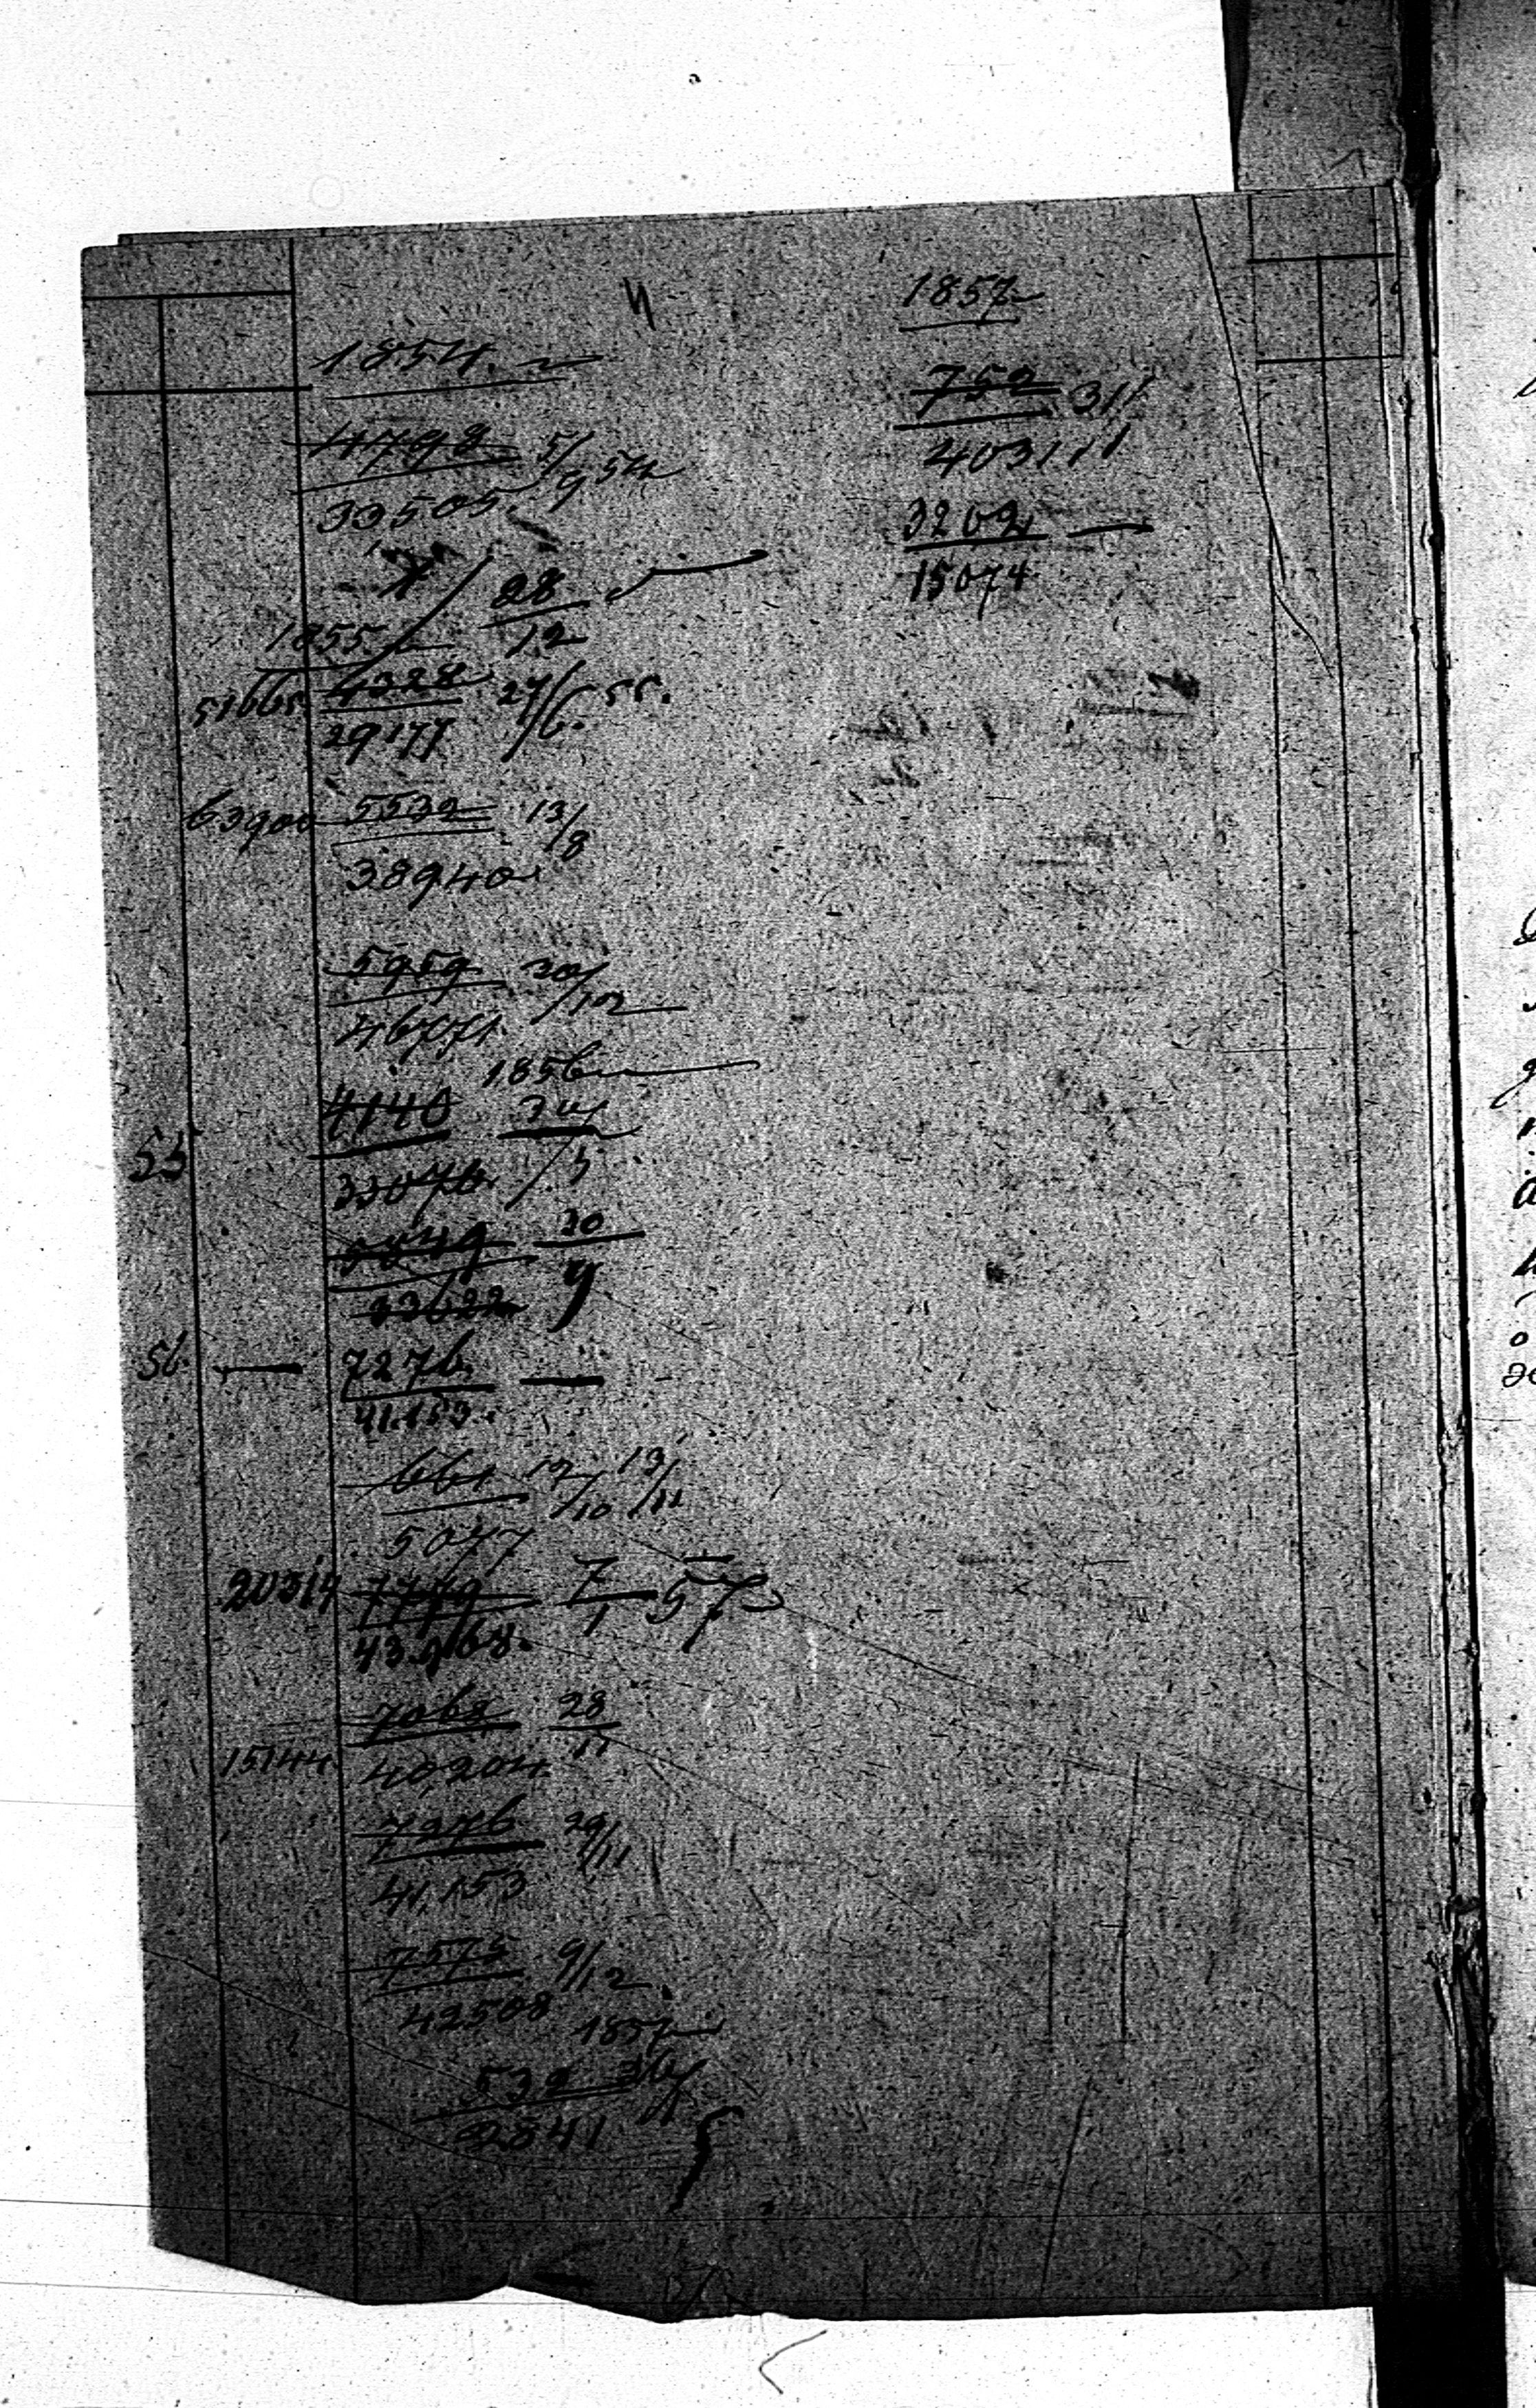 1854.
4798 5/9 54
33505.
28/12
1855.
51665 4328 27/6. 55.
29177
63900 5532 13/8
38940
5959 20/12
46771.
1856
4140
55
33076. /5
20
9
33622
56. — 7276. —
41.153.
661 12/10 13/11
5047
20314 7779 7/1 57
43.968.
7068 28/11
15144 40,204
7276 29/11
41,153
7575 9/12.
42508 1857
532
2841
1857
752 31/1
4031
3202 —
15074